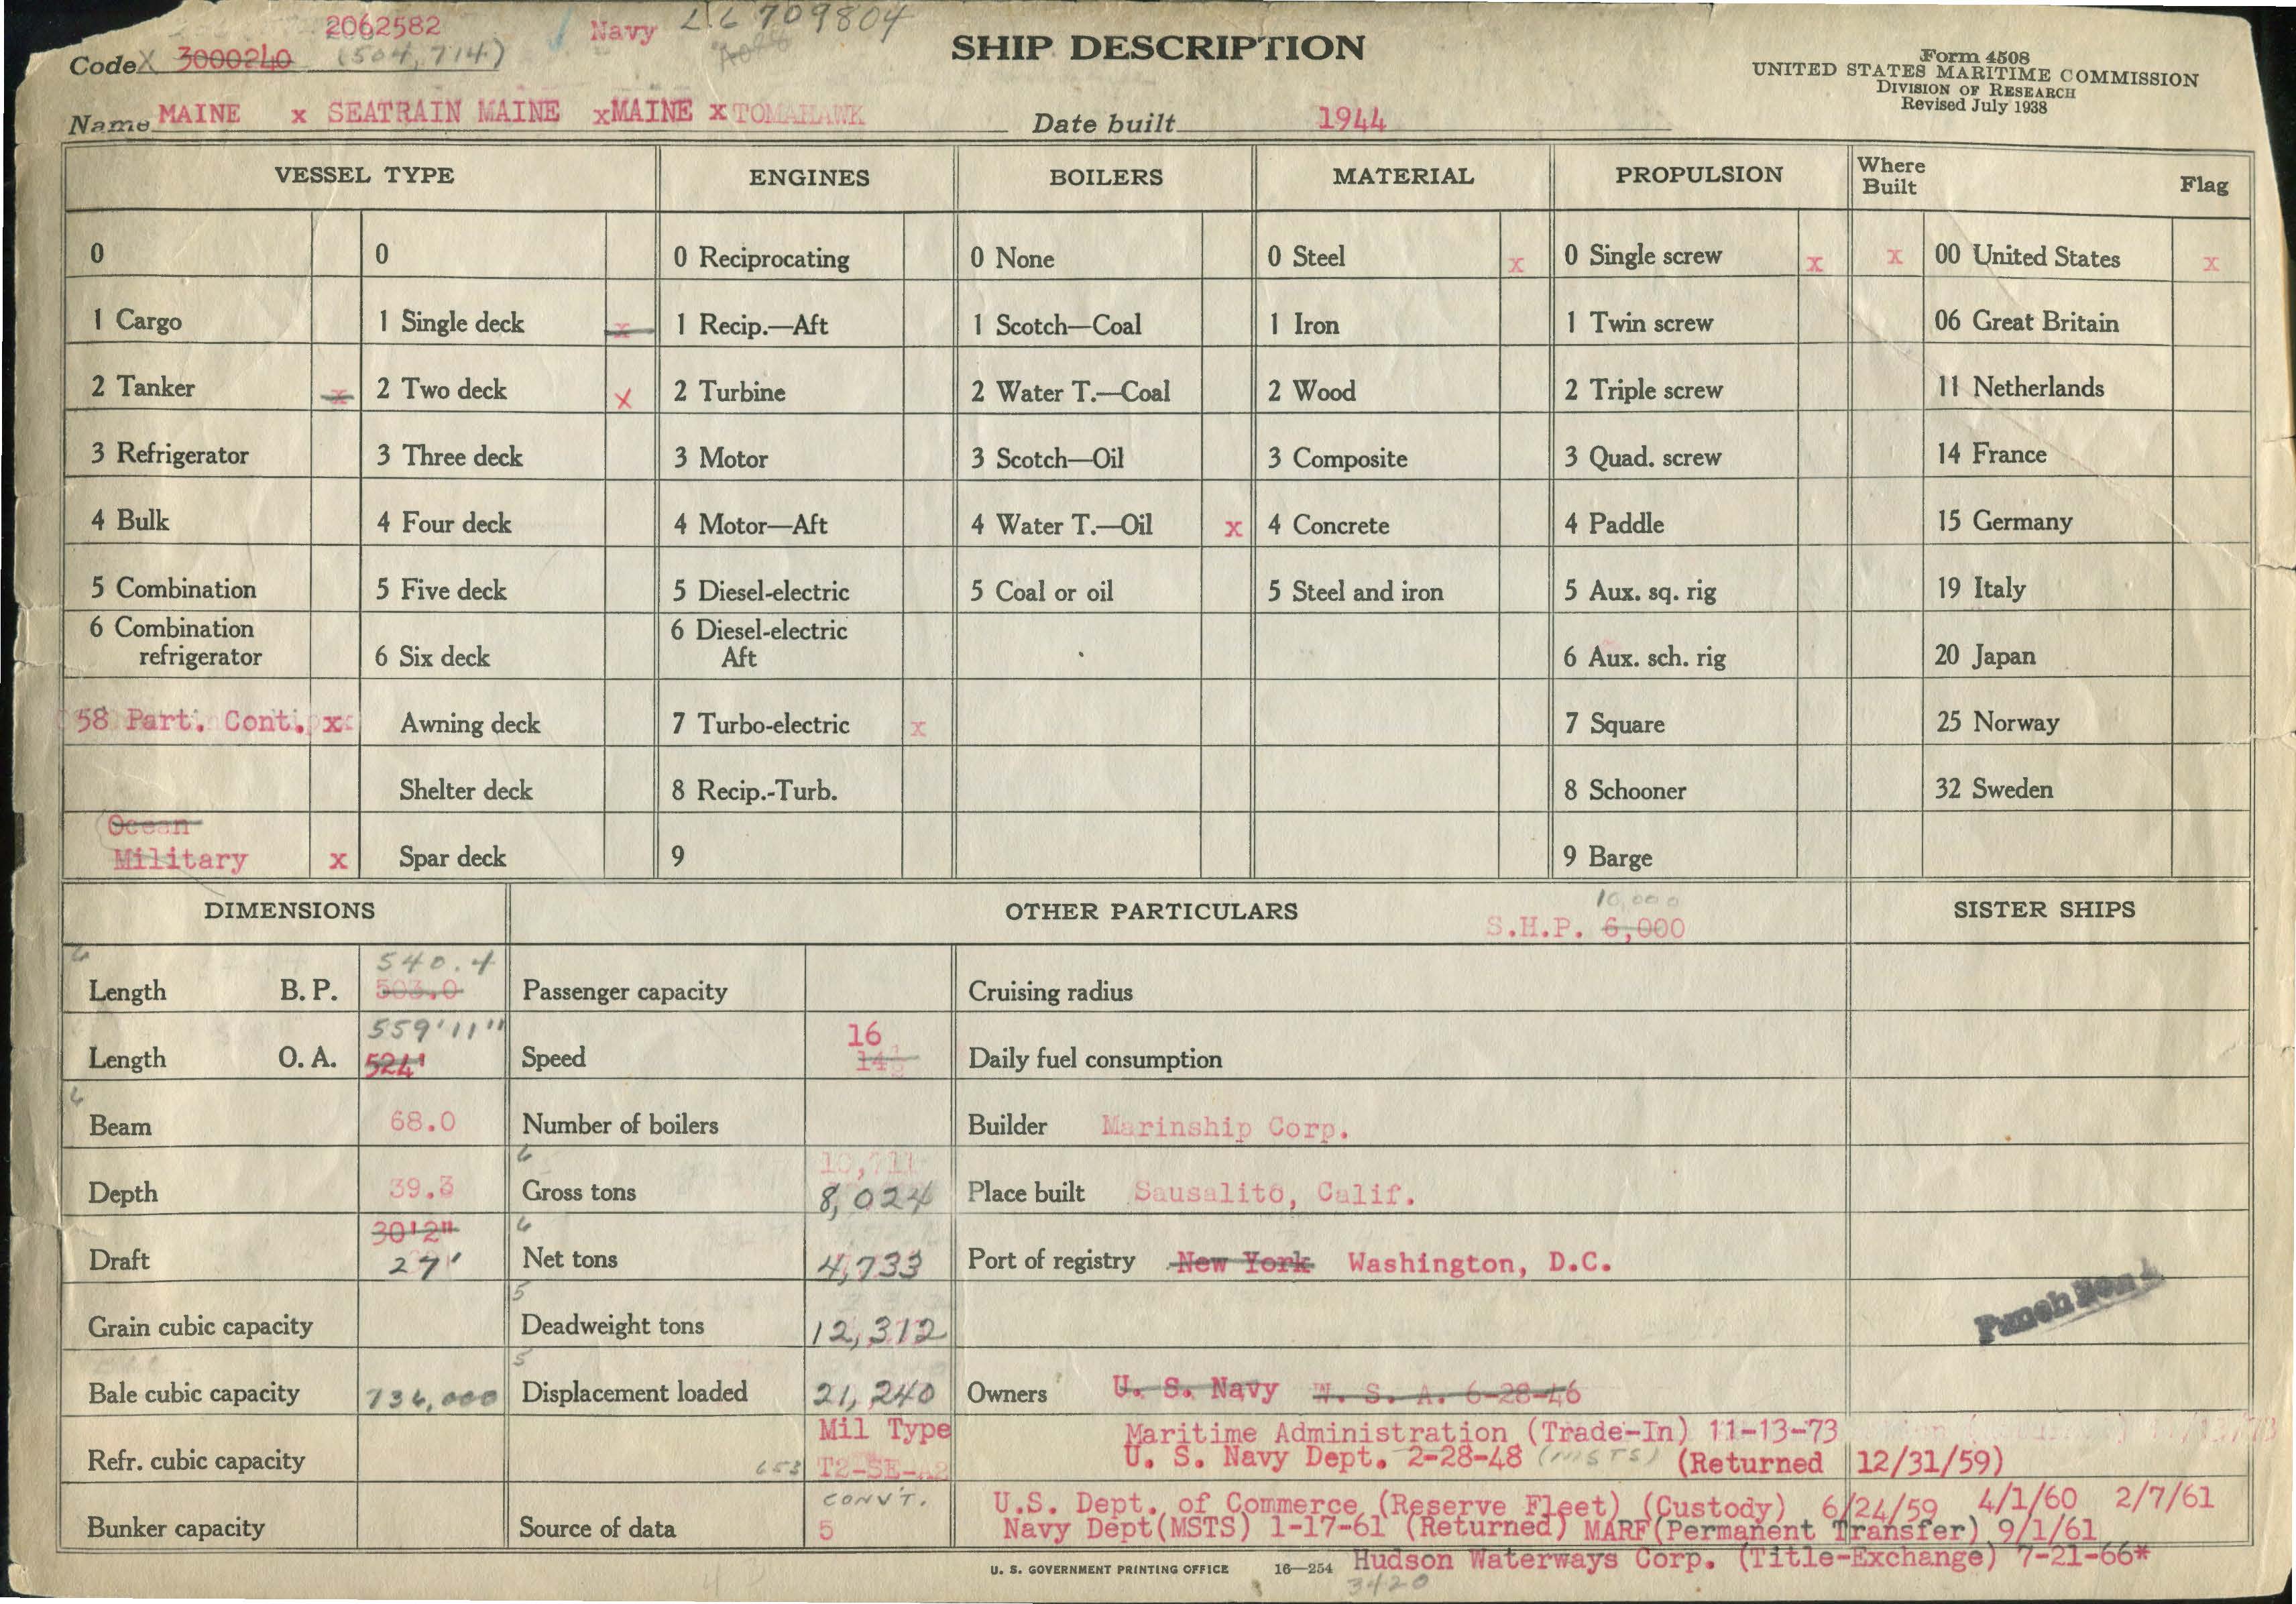 2062582 Navy L.6 709804
Code X 3000240 (504,714) SHIP DESCRIPTION
Form 4508
UNITED STATES MARITIME COMMISSION
DIVISION OF RESEARCH
Revised July 1938
Name MAINE x SEATRAIN MAINE xMAINE x TOMAHAWK Date built 1944
VESSEL TYPE ENGINES BOILERS MATERIAL PROPULSION Where Built Flag
0 0 0 Reciprocating 0 None 0 Steel x 0 Single screw x x 00 United States x
1 Cargo 1 Single deck x 1 Recip.—Aft 1 Scotch—Coal 1 Iron 1 Twin screw 06 Great Britain
2 Tanker x 2 Two deck x 2 Turbine 2 Water T.—Coal 2 Wood 2 Triple screw 11 Netherlands
3 Refrigerator 3 Three deck 3 Motor 3 Scotch—Oil 3 Composite 3 Quad. screw 14 France
4 Bulk 4 Four deck 4 Motor—Aft 4 Water T.—Oil x 4 Concrete 4 Paddle 15 Germany
5 Combination 5 Five deck 5 Diesel-electric 5 Coal or oil 5 Steel and iron 5 Aux. sq. rig 19 Italy
6 Combination refrigerator 6 Six deck 6 Diesel-electric Aft 6 Aux. sch. rig 20 Japan
58 Part. Cont. x Awning deck 7 Turbo-electric x 7 Square 25 Norway
Shelter deck 8 Recip.-Turb. 8 Schooner 32 Sweden
Ocean
Military x Spar deck 9 9 Barge
DIMENSIONS OTHER PARTICULARS 10,000 SISTER SHIPS
S.H.P. 6,000
540.4
Length B. P. 503.0 Passenger capacity Cruising radius
559'11" 16
Length O. A. 524' Speed 14½ Daily fuel consumption
Beam 68.0 Number of boilers Builder Marinship Corp.
6 10,711
Depth 39.3 Gross tons 8,024 Place built Sausalito, Calif.
30'2" 6
Draft 27' Net tons 4,733 Port of registry New York Washington, D.C.
5
Grain cubic capacity Deadweight tons 12,312 Punch
5
Bale cubic capacity 736,000 Displacement loaded 21,240 Owners U. S. Navy W. S. A. 6-28-46
Mil Type Maritime Administration (Trade-In) 11-13-73
Refr. cubic capacity 653 T2-SE-A2 U. S. Navy Dept. 2-28-48 (MSTS) (Returned 12/31/59)
CONV'T. U.S. Dept. of Commerce (Reserve Fleet) (Custody) 6/24/59 4/1/60 2/7/61
Bunker capacity Source of data 5 Navy Dept(MSTS) 1-17-61 (Returned) MARF(Permanent Transfer) 9/1/61
U. S. GOVERNMENT PRINTING OFFICE 16—254 Hudson Waterways Corp. (Title-Exchange) 7-21-66*
3420